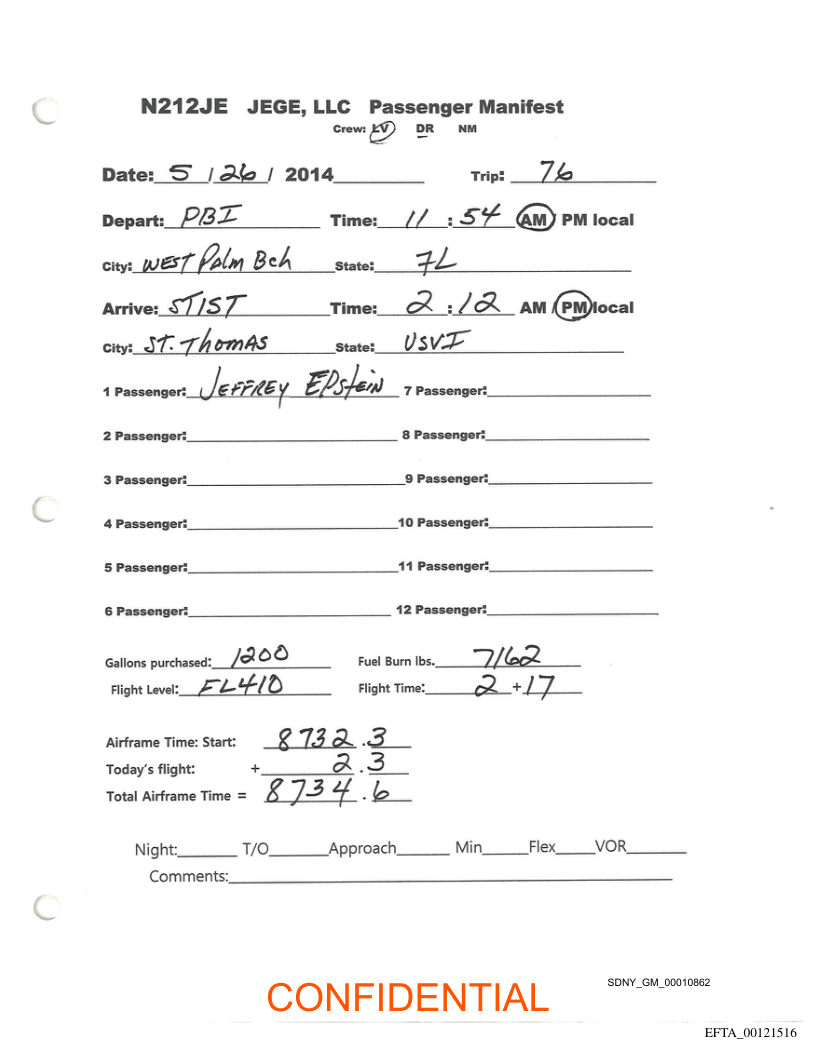 N212JE JEGE, LLC Passenger Manifest
Crew: LV DR NM
Date: 5 / 26 / 2014 Trip: 76
Depart: PBI Time: 11 : 54 AM / PM local
City: WEST Palm Bch State: FL
Arrive: STIST Time: 2 : 12 AM / PM local
City: ST. THOMAS State: USVI
1 Passenger: JEFFREY EPStEIN 7 Passenger:
2 Passenger: 8 Passenger:
3 Passenger: 9 Passenger:
4 Passenger: 10 Passenger:
5 Passenger: 11 Passenger:
6 Passenger: 12 Passenger:
Gallons purchased: 1200 Fuel Burn lbs. 7162
Flight Level: FL410 Flight Time: 2 + 17
Airframe Time: Start: 8732 .3
Today's flight: + 2 .3
Total Airframe Time = 8734 .6
Night: T/O Approach Min Flex VOR
Comments:
SDNY_GM_00010862
CONFIDENTIAL
EFTA_00121516